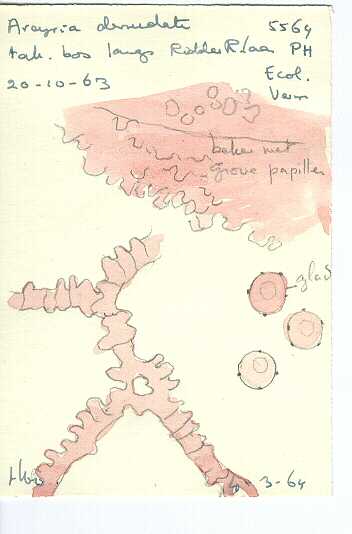 Arcyria denudata 5569
tak. bos langs Ridder R.laan PH
20-10-63 Ecol.
Verm
beker met
grove papillen
glad
3-64